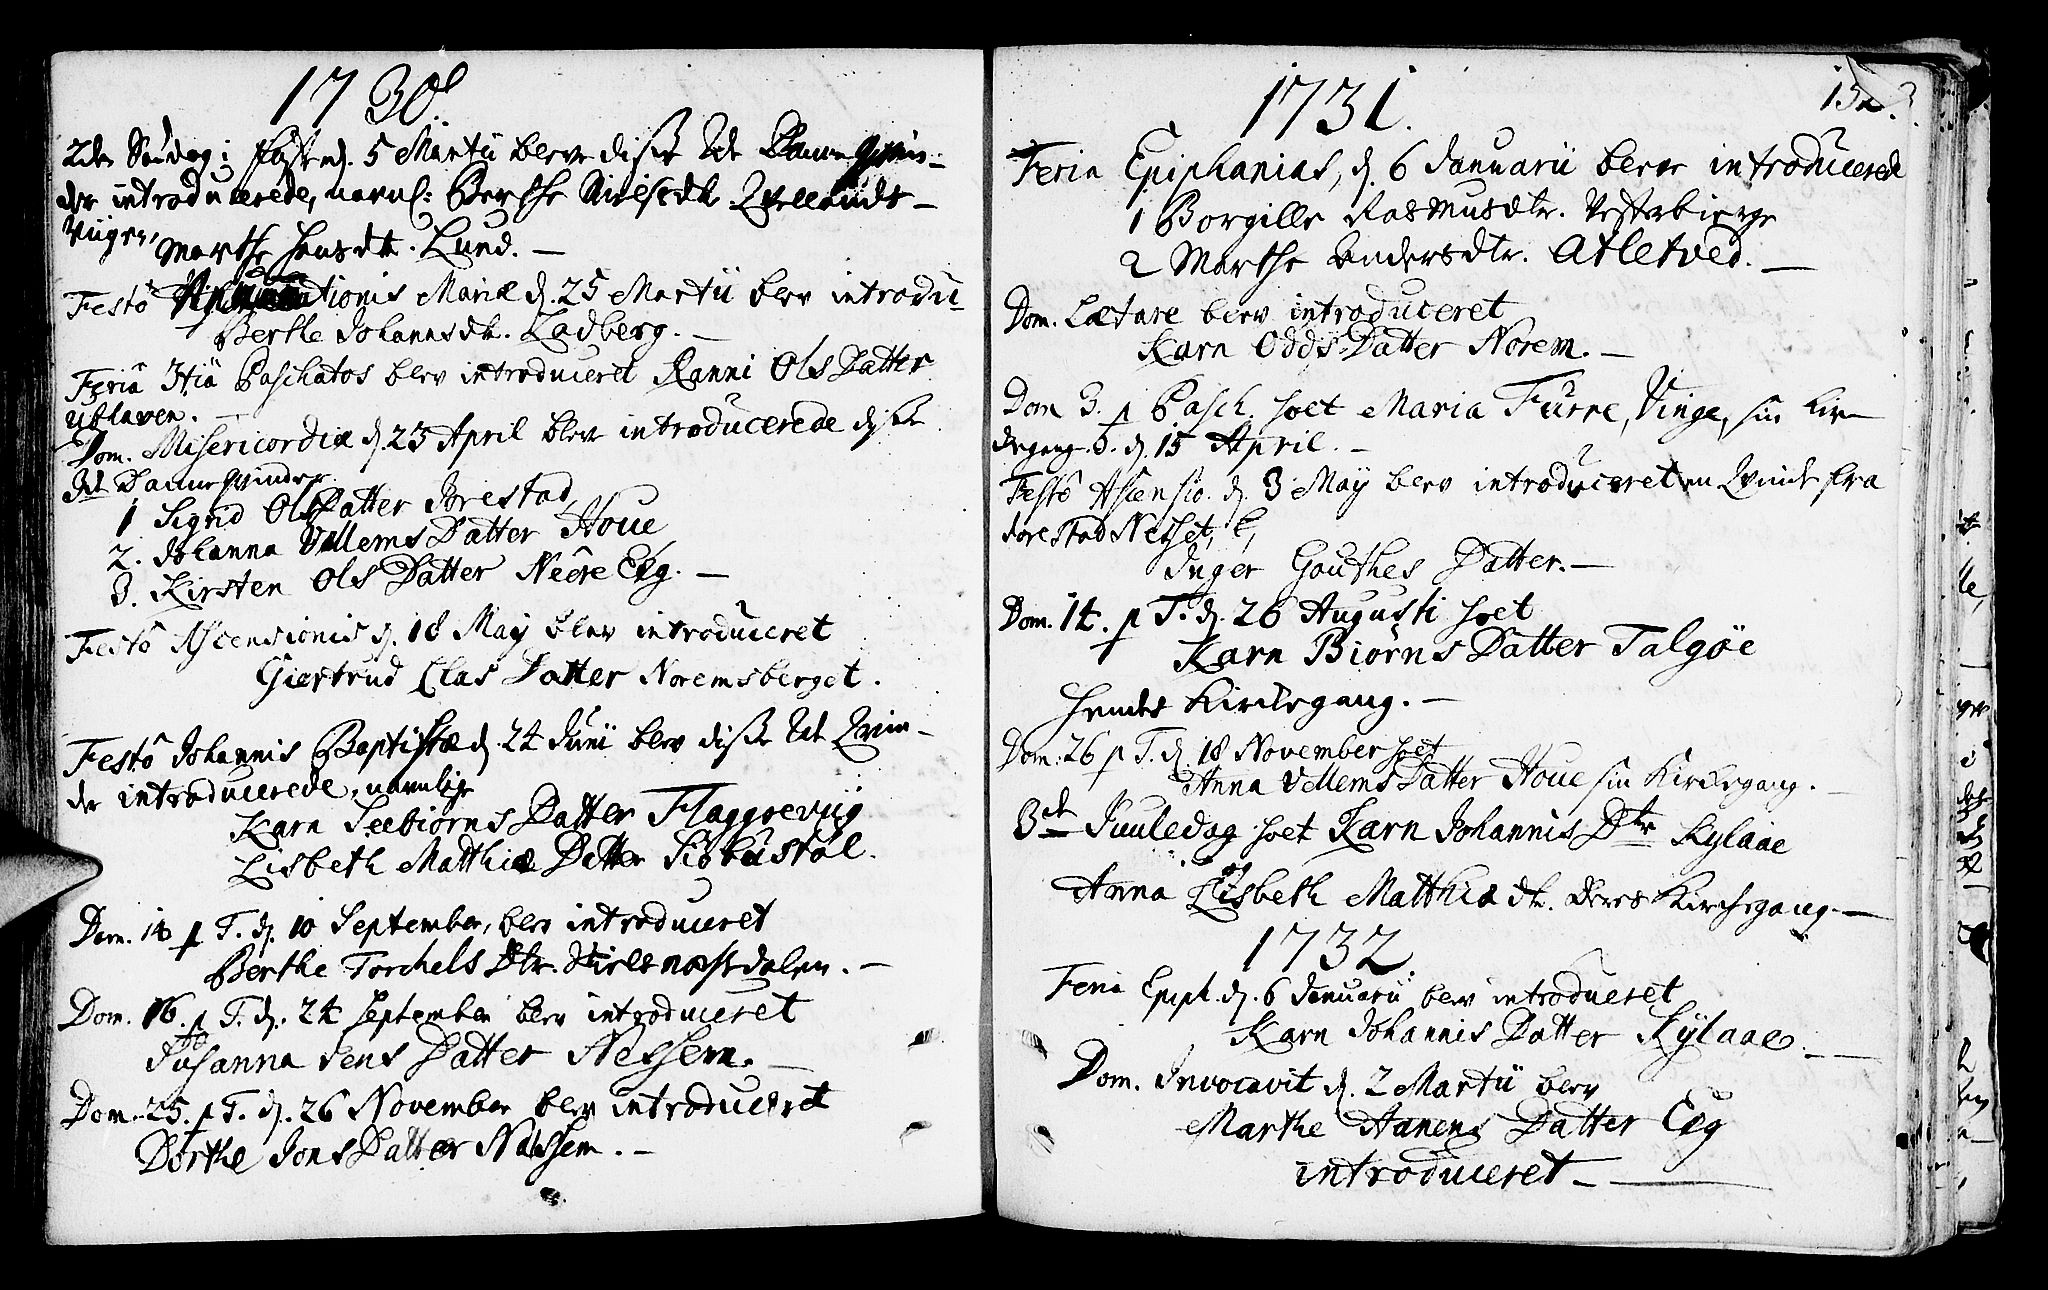 1730
2den Søndag i Fasten d. 5 Martii bleve disse 2de Danneqvin-
der introducerede, navnl: Berthe Nielsdtr. Qvellands-
Viigen, Marthe Hansdtr. Lund. —
Festo Mariæ d. 25 Martii blev introdu-
Berthe Johannsdtr. Ladberg. —
Feriâ Paschatos blev introduceret Ranni Ols Datter
Utklaven. —
Dom. Misericordiæ d. 23 April blev introducerede disse
3de Danneqvinder
1 Sigrid Ols Datter Jorestad
2. Johanna Vellems Datter Houe
3. Kirsten Ols Datter Nedre Eeg. —
Festo Ascensionis d. 18 May blev introduceret
Giertrud Clas Datter Noremsberget.
Festo Johannis Baptistæ d. 24 Junii blev disse 2de Qvin-
der introducerede, navnlige
Karn Seebiørns Datter Flaggeviig
Lisbeth Matthiæ Datter
Dom. 14 p T. d. 10 September, blev introduceret
Berthe Torchels Dtr.
Dom. 16. p T. d. 24 September blev introduceret
Susanna Jens Datter Nessem. —
Dom. 25. p T. d. 26 November blev introduceret
Dorthe Jons Datter Nessem. —
1731.
152.
Feria Epiphanias, d. 6 Januarii bleve introducerede
1 Borgille Rasmusdtr. Vesterbierge
2 Marthe Andersdtr. Atletved. —
Dom. Lætare blev introduceret
Karn Odds Datter Norem. —
Dom 3. p Pasch. hoet Maria Furre, Vinge, sin Kir-
degang d. 15 April. —
Festo Ascensio. d. 3 May blev introduceret en Qvinde fra
Jorestad Nesset,
Inger Gouthes Datter. —
Dom. 14. p T. d. 26 Augusti hoet
Karn Biørns Datter Talgøe
hendes Kirckegang. —
Dom: 26 p T. d. 18 November hoet
Anna Vellems Datter Houe sin Kirckegang. —
3de Juuledag hoet Karn Johannis Dtr Kylaae
og
Anna Lisbeth Matthiæ dtr. deres Kirckegang. —
1732
Feria Epiph. d. 6 Januarii blev introduceret
Karn Johannis Datter Kylaae. —
Dom. Invocavit d. 2 Martii blev
Marthe Aanens Datter Eeg
introduceret —